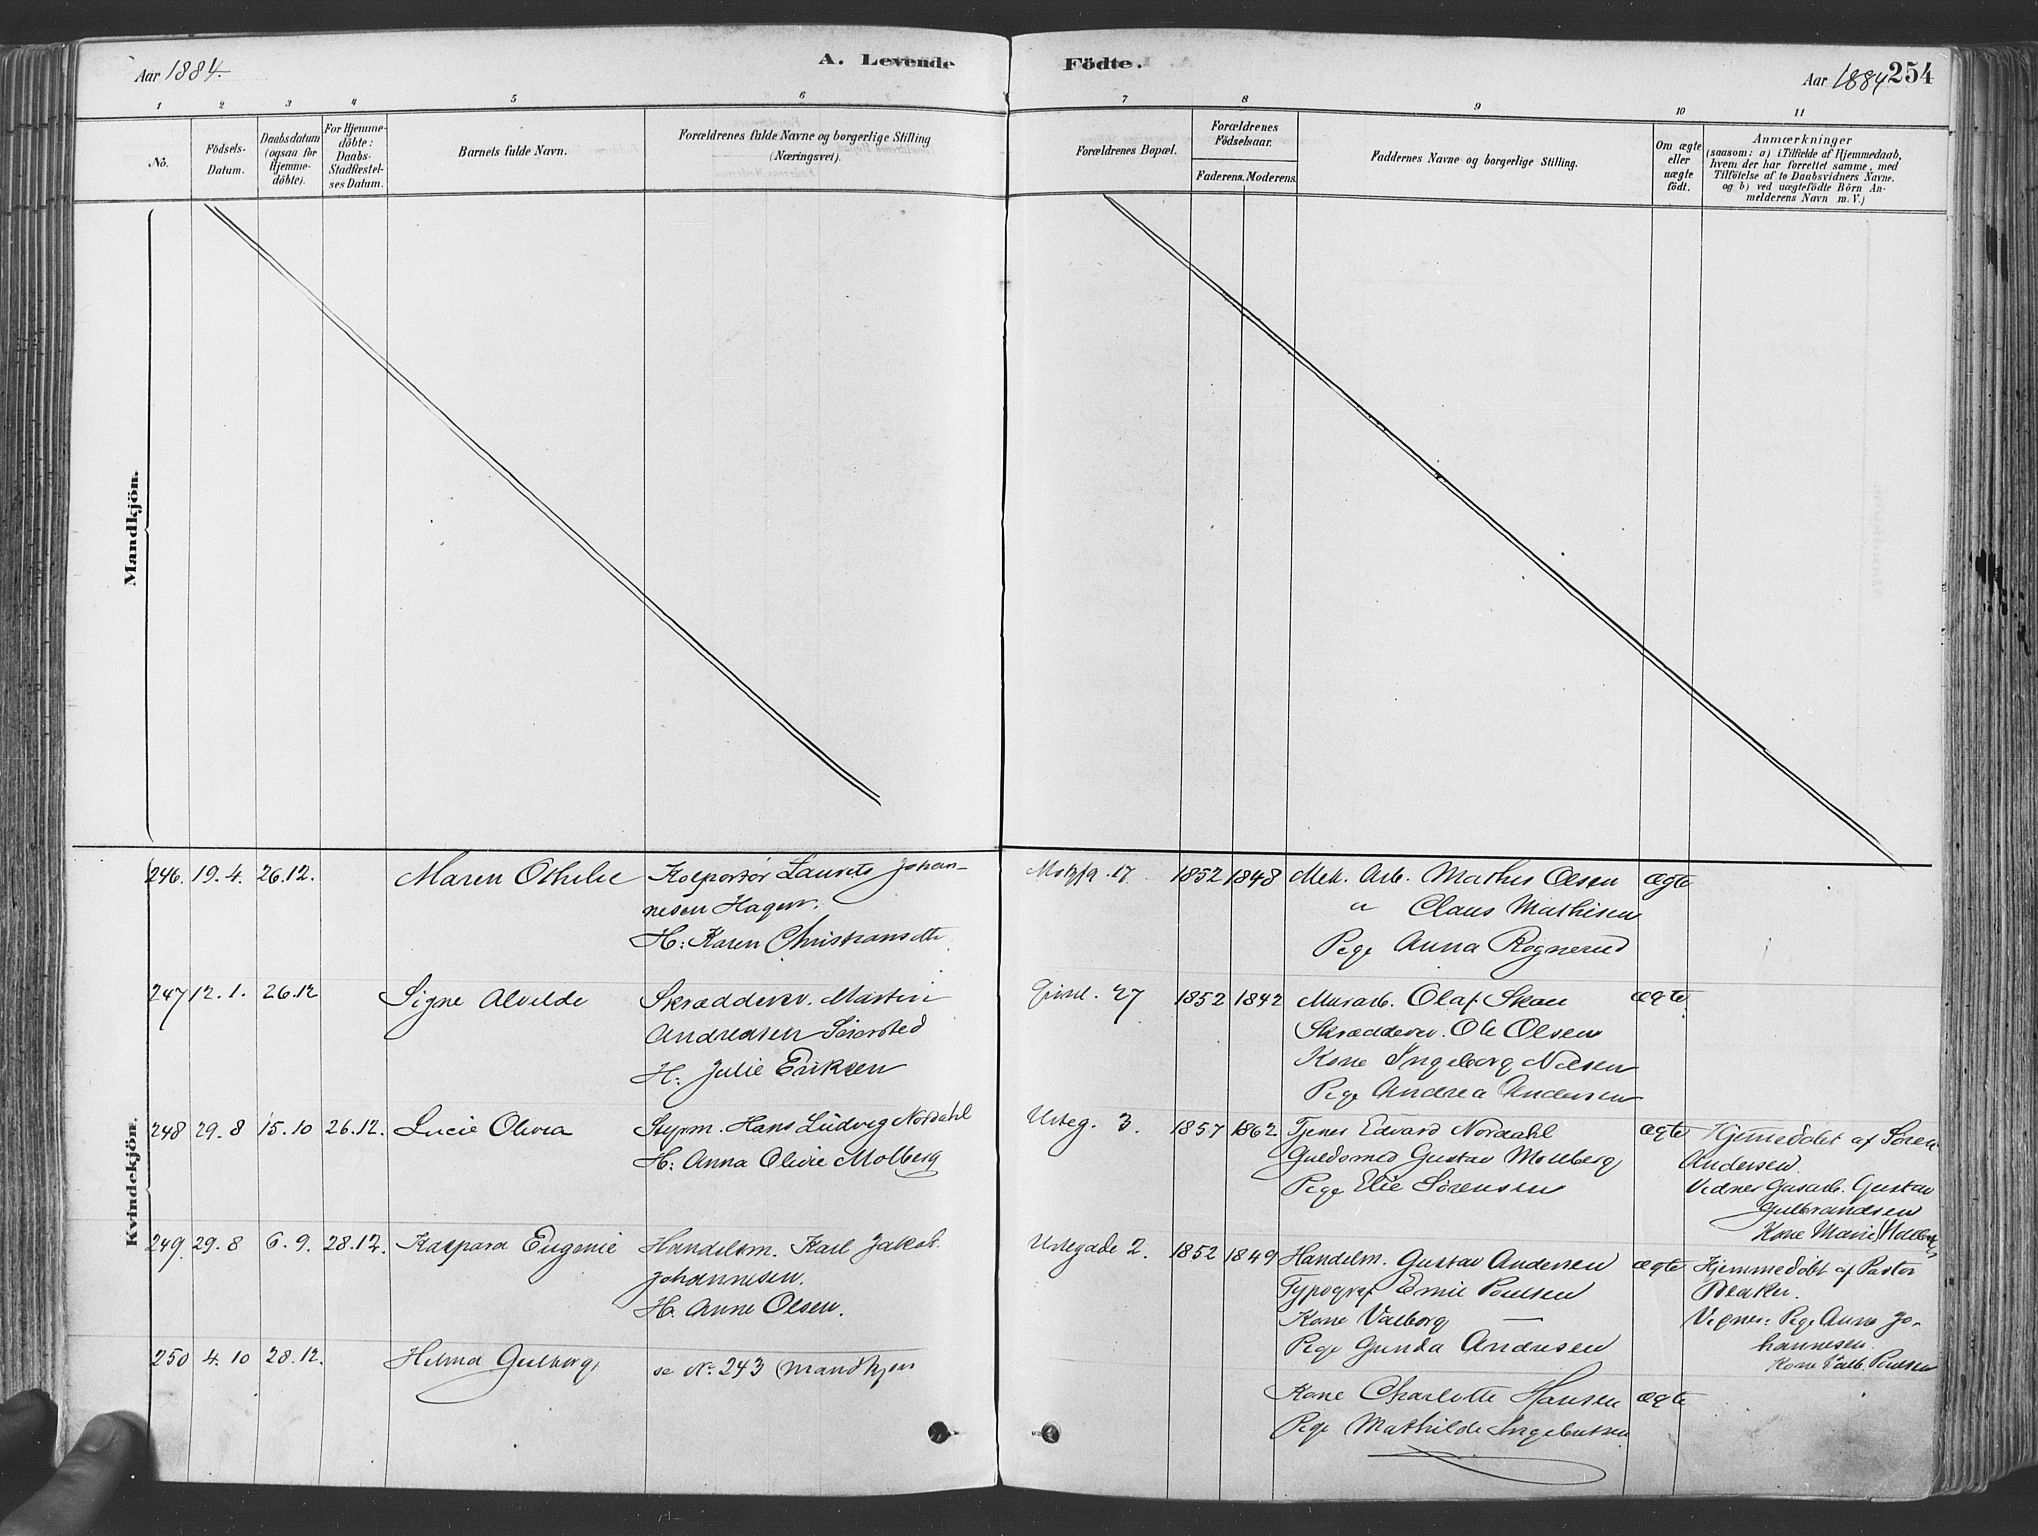 Aar 1884.
A. Levende Födte.
Aar 1884 254
1 2 3 4 5 6 7 8 9 10 11
No.
Födsels-
Datum.
Daabsdatum
(ogsaa for
Hjemme-
döbte).
For Hjemme-
döbte:
Daabs-
Stadfæstel-
ses Datum.
Barnets fulde Navn.
Forældrenes fulde Navne og borgerlige Stilling
(Næringsvei).
Forældrenes Bopæl.
Forældrenes
Födselsaar.
Faderens. Moderens.
Faddernes Navne og borgerlige Stilling.
Om ægte
eller
uægte
födt.
Anmærkninger
(saasom: a) i Tilfælde af Hjemmedaab,
hvem der har forrettet samme, med
Tilföielse af to Daabsvidners Navne.
og b) ved uægtefödte Börn An-
melderens Navn m.V.)
Mandkjön.
Kvindekjön.
246. 19.4. 26.12. Maren Othilie
Kolportør Laurits Johan-
nesen Hagen.
H: Karen Christiansdtr
1852 1848
Mek. Arb. Mathis Olsen
" Claus Mathisen
Pige Anna Rognerud
ægte
247 12.1. 26.12 Signe Alvilde
Skræddersv. Martin
Andreasen Sørorsted
H: Julie Eriksen
27 1852 1842
Murarb. Olaf Skau
Skræddersv. Ole Olsen
Kone Ingeborg Nilsen
Pige Andrea Andersen
ægte
248 29.8 15.10 26.12. Lucie Olivia
Styrm. Hans Ludvig Nordahl
H: Anna Olivie Molberg
Urteg. 3. 1857 1862
Tjener Edvard Nordahl
Guldsmed Gustav Mollberg
Pige Elie Sørensen
ægte
Hjemmedøbt af Søren
Andersen.
Vidner Gasarb. Gustav
Gulbrandsen
Kone Marie
249. 29.8 6.9. 28.12. Kaspara Eugenie
Handelsm. Karl Jakob
Johannesen.
H. Anne Olsen.
Urtegade 2. 1852 1849
Handelsm. Gustav Andersen
Typograf Emil Poulsen
Kone Valborg —
Pige Gunda Andresen
ægte
Hjemmedøbt af Pastor
Blakr.
Vidner: Pige Anna Jo-
hannesen
Kone Valb. Poulsen
250 4.10 28.12. Helma Gulborg,
se No. 243 Mandkjøn
Kone Charlotte Hansen
Pige Mathilde Ingebretsen
ægte